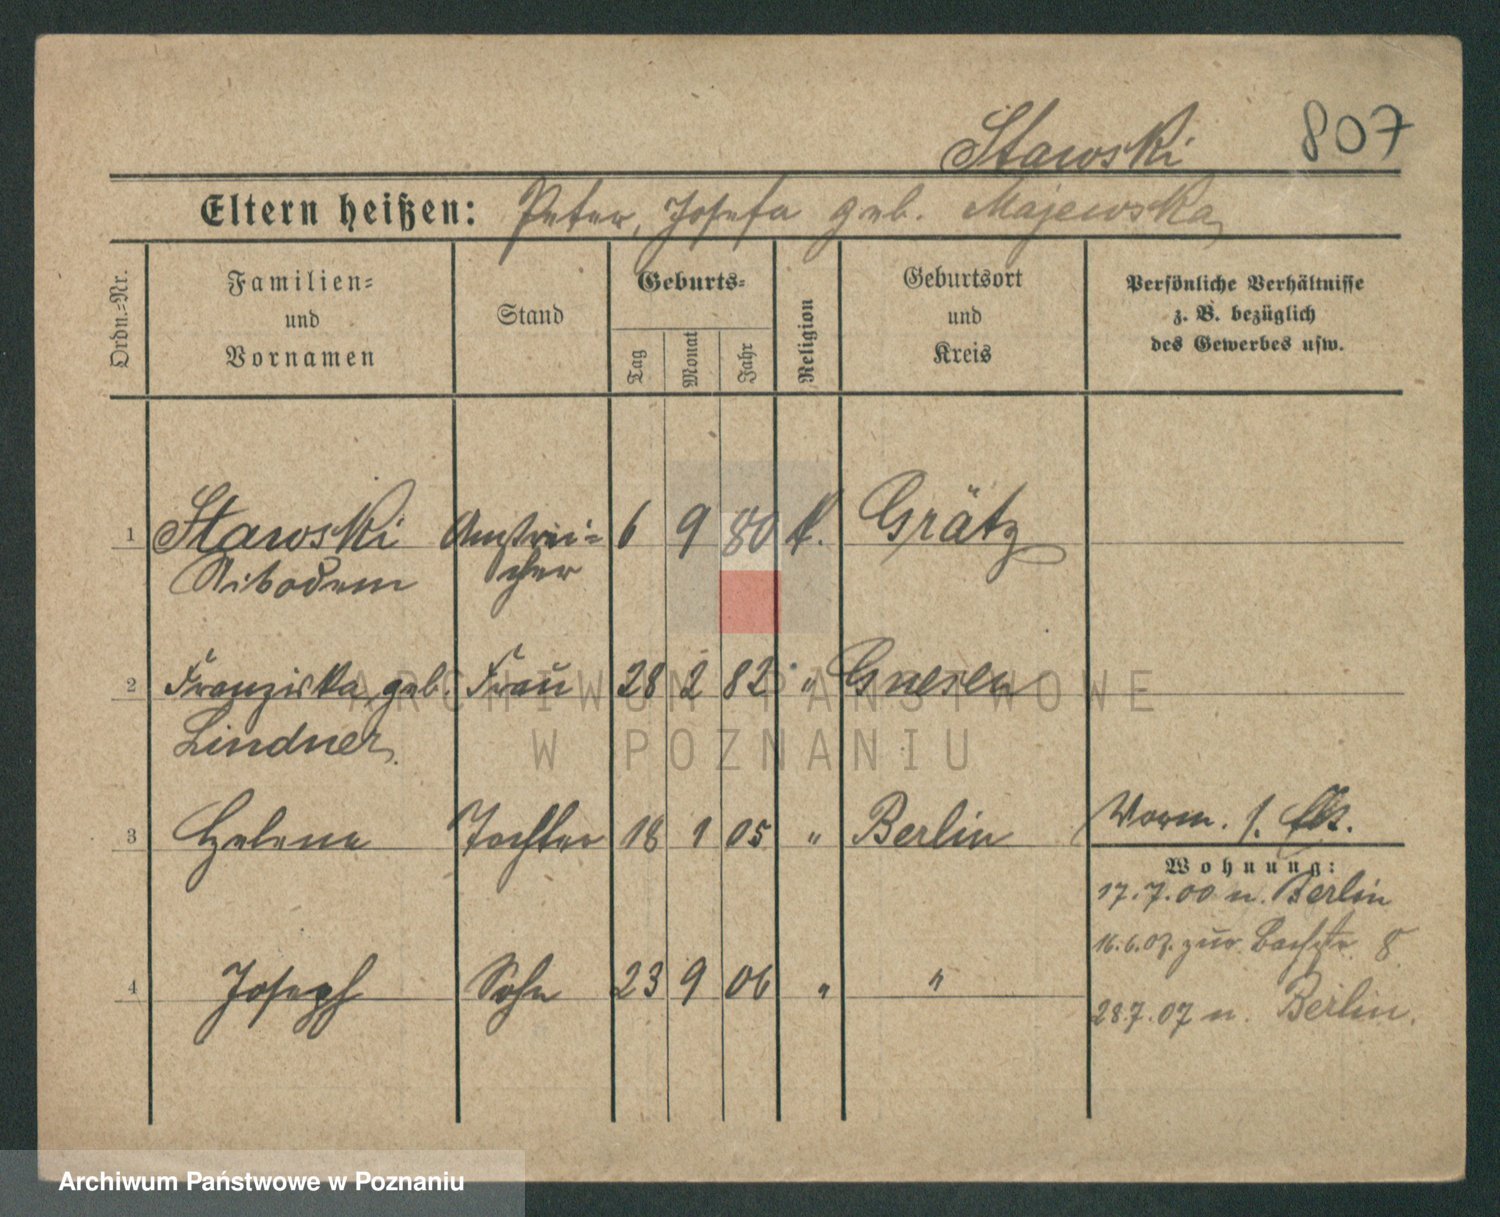 Stawski 807
Eltern heißen: Peter, Josefa geb. Majewska
Ordn.=Nr.
Familien=
und
Vornamen
Stand
Geburts=
Tag
Monat
Jahr
Religion
Geburtsort
und
Kreis
Persönliche Verhältnisse
z. B. bezüglich
des Gewerbes usw.
1 Stawski Anstrei= 6 9 80 k. Grätz
cher
2 Franziska, geb. Frau 28 2 82 " Gnesen
Lindner
3 Helene Tochter 18 1 05 " Berlin
Vorm. s.
Wohnung:
17.7.00 n. Berlin
16.6.07. zur. Bachstr. 8
4 Joseph Sohn 23 9 06 " "
28.7.07 n. Berlin.
ARCHIWUM PAŃSTWOWE
W POZNANIU
Archiwum Państwowe w Poznaniu